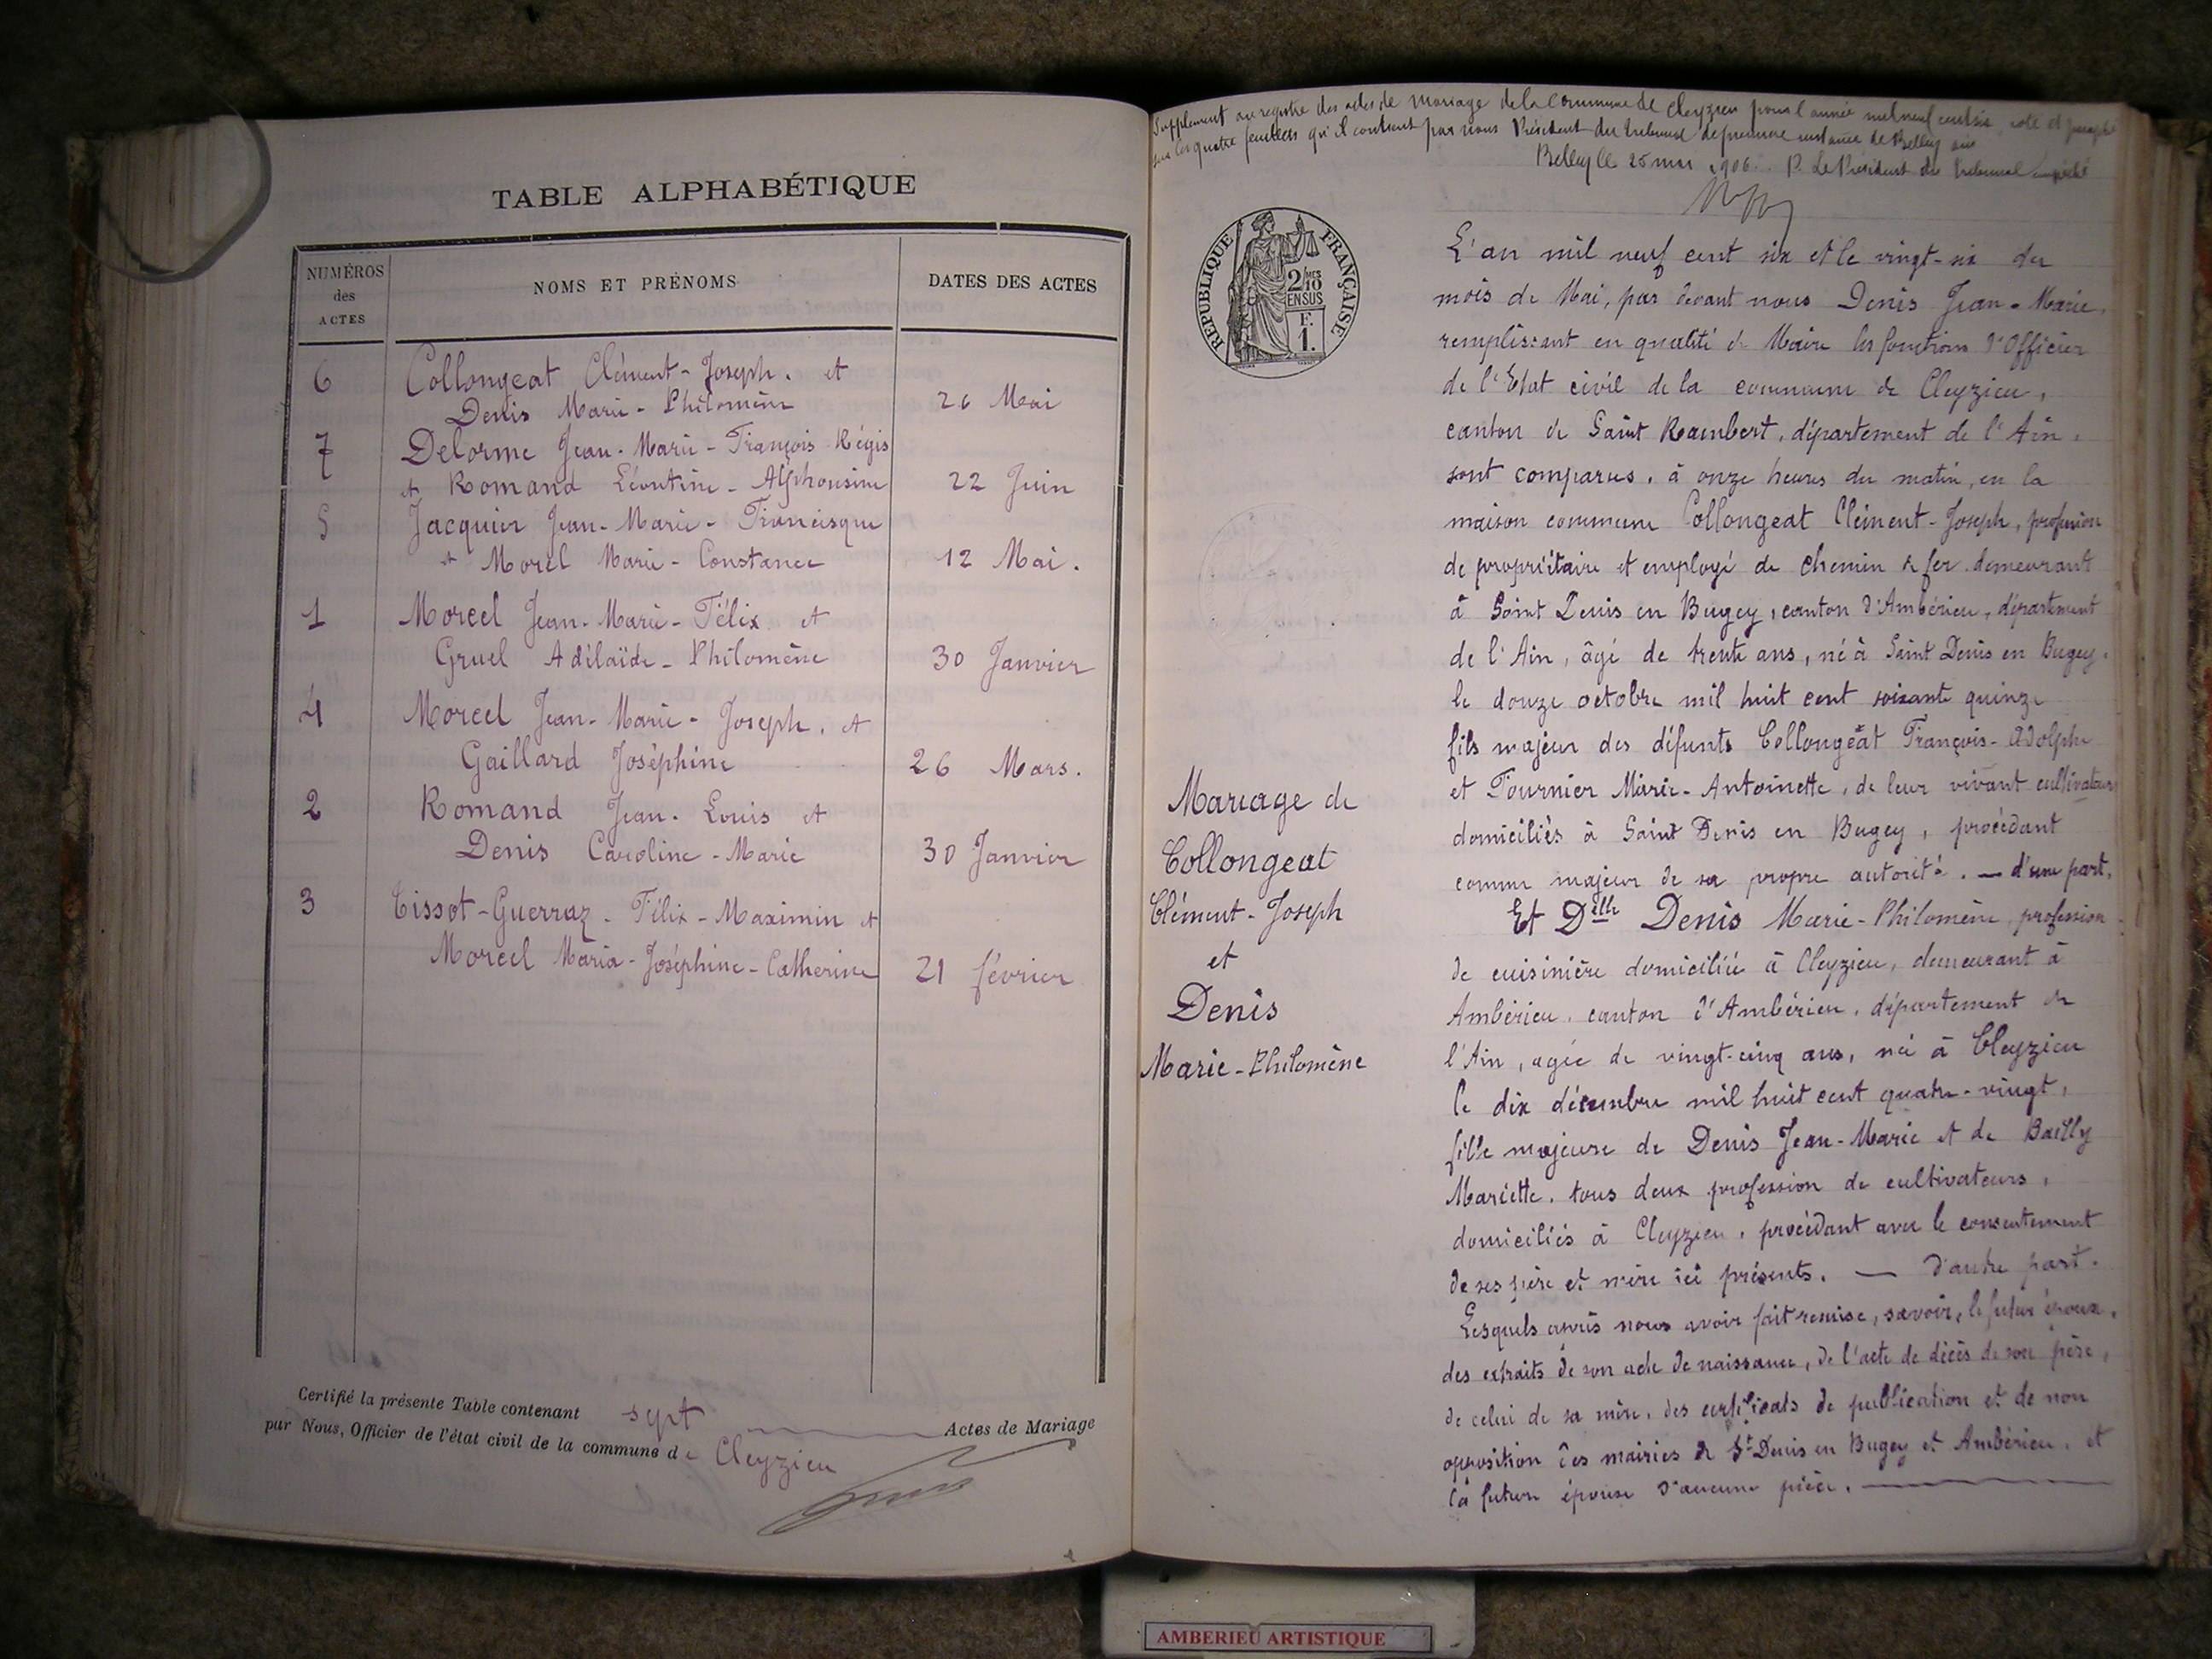 TABLE ALPHABÉTIQUE
NUMÉROS
des
ACTES
NOMS ET PRÉNOMS
DATES DES ACTES
6 Collongeat Clément-Joseph. et
Denis Marie-Philomène 26 Mai
7 Delorme Jean-Marie-François Régis
et Romand Léontine-Alphonsine 22 Juin
5 Jacquier Jean-Marie-Francisque
et Morel Marie-Constance 12 Mai.
1 Morcel Jean-Marie-Félix et
Gruel Adélaïde-Philomène 30 Janvier
4 Morcel Jean-Marie-Joseph. et
Gaillard Joséphine 26 Mars.
2 Romand Jean-Louis et
Denis Caroline-Marie 30 Janvier
3 Tissot-Guerraz-Félix-Maximin et
Morcel Maria-Joséphine-Catherine 21 février
Certifié la présente Table contenant sept Actes de Mariage
par Nous, Officier de l'état civil de la commune de Cleyzieu
Supplément au registre des actes de Mariage de la Commune de Cleyzieu pour l'année mil neuf cent six, coté et paraphé
sur les quatre feuillets qu'il contient par nous Président du tribunal de première instance de Belley
Belley le 25 mai 1906. P. Le Président du tribunal empêché
REPUBLIQUE FRANÇAISE
2/10 MES
EN SUS
F.
1.
L'an mil neuf cent six et le vingt-six du
mois de Mai, par devant nous Denis Jean-Marie,
remplissant en qualité de Maire les fonctions d'Officier
de l'Etat civil de la commune de Cleyzieu,
canton de Saint Rambert, département de l'Ain,
sont comparus, à onze heures du matin, en la
maison commune Collongeat Clément-Joseph, profession
de propriétaire et employé de chemin de fer demeurant
à Saint Denis en Bugey, canton d'Ambérieu, département
de l'Ain, âgé de trente ans, né à Saint Denis en Bugey,
le douze octobre mil huit cent soixante quinze
fils majeur des défunts Collongeat François-Adolphe
et Fournier Marie-Antoinette, de leur vivant cultivateurs
domiciliés à Saint Denis en Bugey, procédant
comme majeur de sa propre autorité. — d'une part.
Et Delle Denis Marie-Philomène, profession
de cuisinière domiciliée à Cleyzieu, demeurant à
Ambérieu, canton d'Ambérieu, département de
l'Ain, agée de vingt-cinq ans, née à Cleyzieu
le dix décembre mil huit cent quatre-vingt,
fille majeure de Denis Jean-Marie et de Bailly
Mariette, tous deux profession de cultivateurs,
domiciliés à Cleyzieu, procédant avec le consentement
de ses père et mère ici présents. — D'autre part.
Lesquels après nous avoir fait remise, savoir, le futur époux,
des extraits de son acte de naissance, de l'acte de décès de son père,
de celui de sa mère, des certificats de publication et de non
opposition des mairies de St Denis en Bugey et Ambérieu, et
la future épouse d'aucune pièce.
Mariage de
Collongeat
Clément-Joseph
et
Denis
Marie-Philomène
AMBERIEU ARTISTIQUE